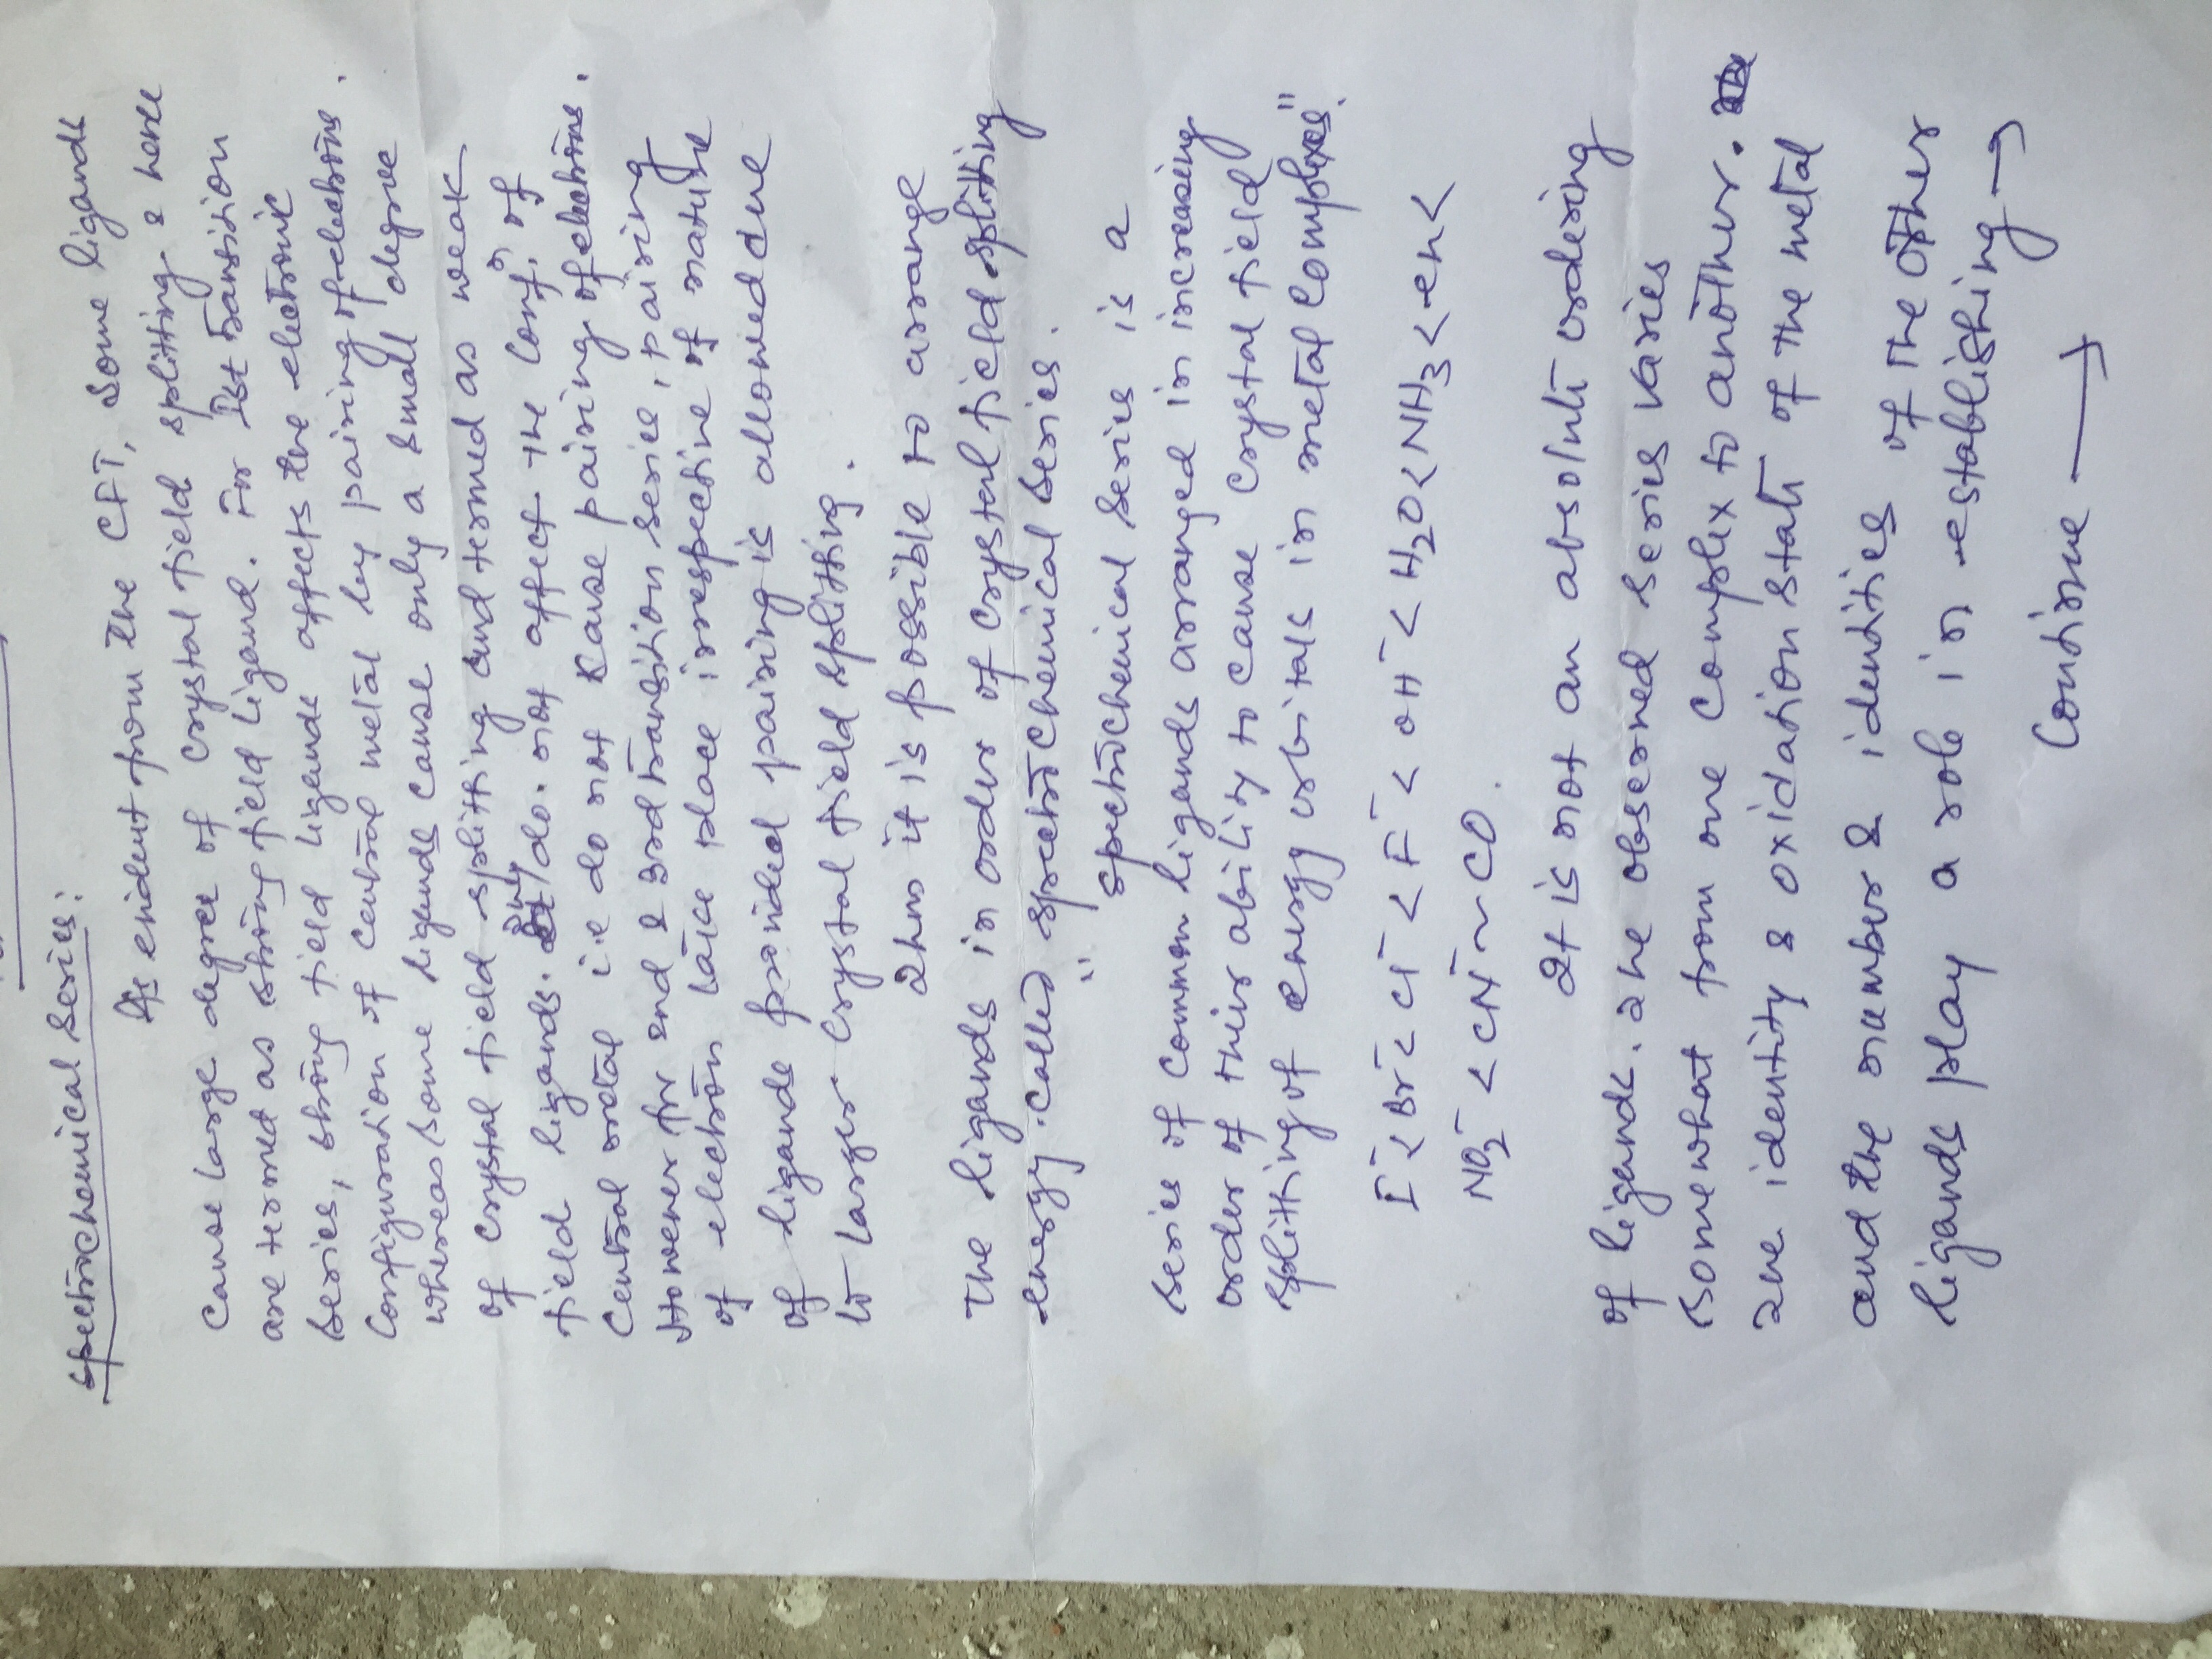 Spectrochemical Series:
As evident from the CFT, Some ligands
Cause large degree of crystal field splitting & here
are termed as strong field ligand. For Ist transition
series, strong field ligands affects the electronic
Configuration of central metal by pairing of electrons.
whereas some ligands cause only a small degree
of crystal field splitting and termed as weak
field ligands. They do not affect the Confn. of
Central metal i.e do not cause pairing of electrons.
However for 2nd & 3rd transition series, pairing
of electron take place irrespective of nature
of ligands provided pairing is allowed due
to larger crystal field splitting.
Thus it is possible to arrange
the ligands in order of crystal field splitting
energy. Called spectrochemical series.
" Spectrochemical series is a
series of common ligands arranged in increasing
order of their ability to cause crystal field
splitting of energy orbitals in metal complexes".
I⁻ < Br⁻ < Cl⁻ < F⁻ < OH⁻ < H₂O < NH₃ < en <
NO₂⁻ < CN⁻ ~ CO.
It is not an absolute ordering
of ligands. The observed series varies
somewhat from one complex to another.
The identity & oxidation state of the metal
and the number & identities of the other
ligands play a role in establishing →
Continue →